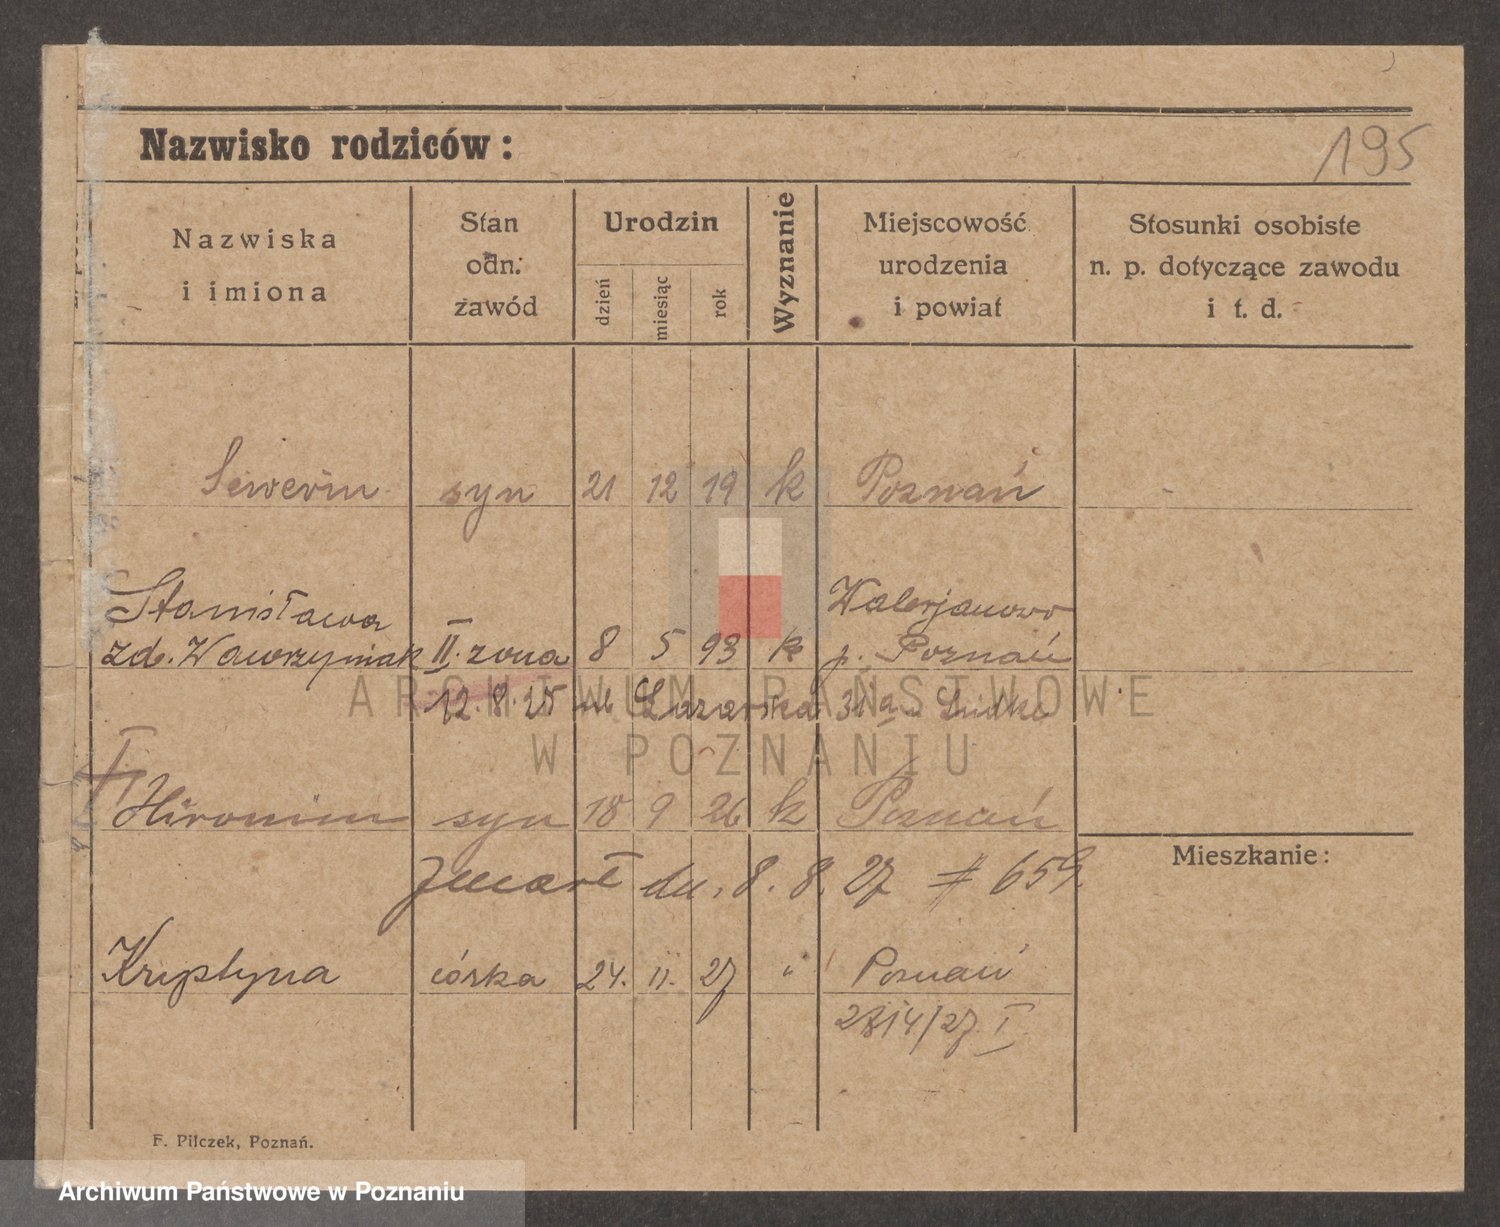 195
Nazwisko rodziców:
Nazwiska
i imiona
Stan
odn.
zawód
Urodzin
dzień
miesiąc
rok
Wyznanie
Miejscowość
urodzenia
i powiat
Stosunki osobiste
n. p. dotyczące zawodu
i t. d.
Sewerin syn 21 12 19 k Poznań
Stanisława Walerjanowo
zd. Wawrzyniak II. żona 8 5 93 k p. Poznań
12.8.25 Łazarska
Hironim syn 18 9 26 k Poznań
Mieszkanie:
Zmarł dn. 8. 8. 27 # 659
Krystyna córka 24. 11. 27 " Poznań
2814/27 I
F. Pilczek, Poznań.
ARCHIWUM PAŃSTWOWE
W POZNANIU
Archiwum Państwowe w Poznaniu